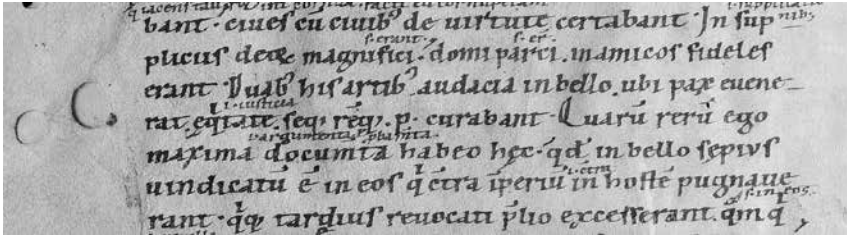 bant · ciues cū ciuib; de uirtute certabant · In sup
s. erant. s. er̄.
pliciis deoꝝ magnifici · domi parci . in amicos fideles
erant · Duab; his artib; audacia in bello . ubi pax euene-
.i. iusticia
rat ęqtate . seq; rēq; . p . curabant · Quarū rerū ego
.i. argumenta
maxima documta habeo hęc · qđ in bello sepius
uindicatū ē in eos q ctra īperiū in hostē pugnaue
s. in eos
rant · qq; tardius reuocati plio excesserant . qm q